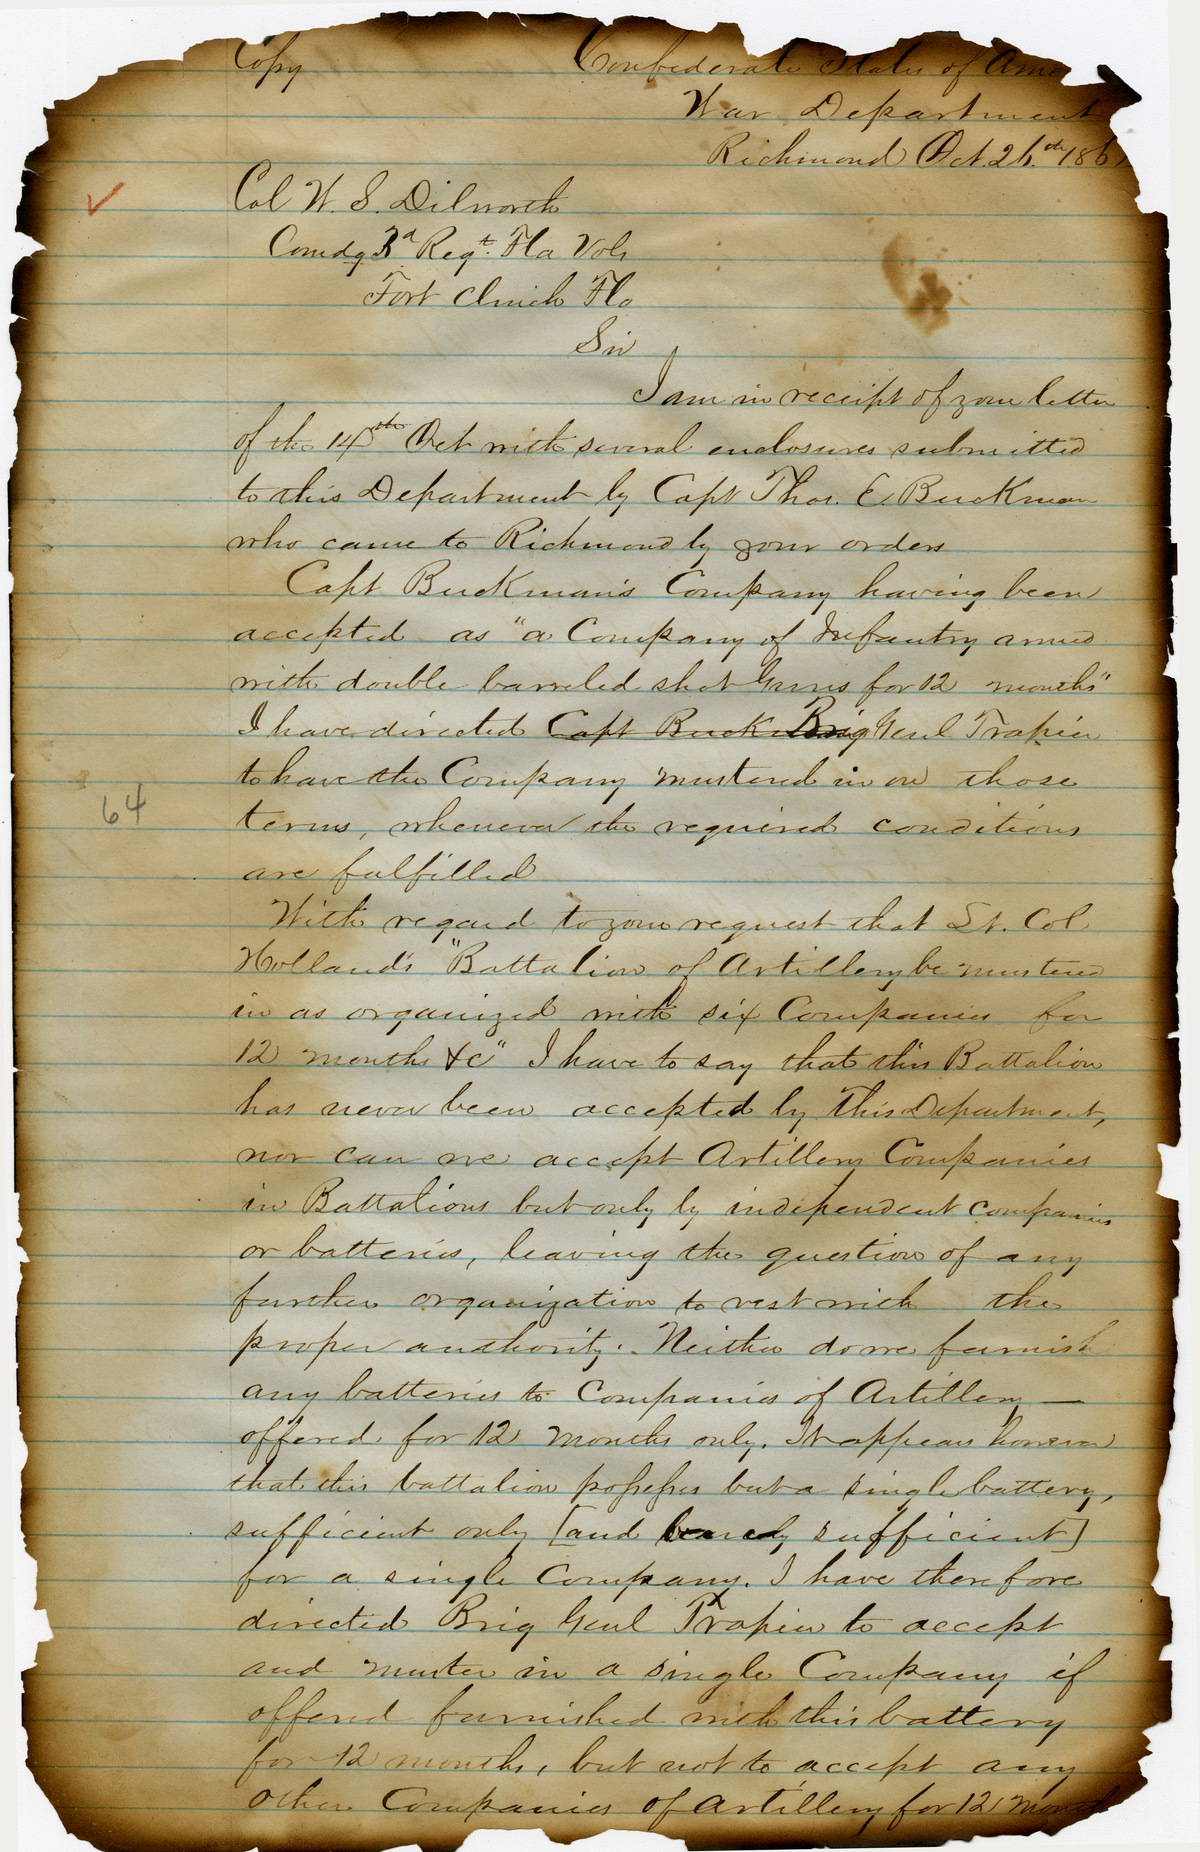 Copy
Confederate States of Ame
War Department
Richmond Oct. 26th 186
Col W. S. Dilworth
Comdg 3d Regt. Fla Vols
Fort Clinch Fla
Sir
I am in receipt of your letter
of the 14th Oct with several enclosures submitted
to this Department by Capt Thos. E. Buckman
who came to Richmond by your orders
Capt Buckman's Company having been
accepted as "a Company of Infantry armed
with double barreled shot Guns for 12 months"
I have directed Capt Buckm Brig Genl Trapier
to have the Company mustered in on those
terms, whenever the required conditions
are fulfilled
64
With regard to your request that Lt. Col
Holland's "Battalion of Artillery be mustered
in as organized with six Companies for
12 months &c" I have to say that this Battalion
has never been accepted by this Department,
nor can we accept Artillery Companies
in Battalions but only by independent companies
or batteries, leaving the question of any
further organization to rest with the
proper authority. Neither do we furnish
any batteries to Companies of Artillery —
offered for 12 months only. It appears however
that this battalion possesses but a single battery,
sufficient only [and barely sufficient]
for a single Company. I have therefore
directed Brig Genl Trapier to accept
and muster in a single Company if
offered furnished with this battery
for 12 months, but not to accept any
other Companies of Artillery for 12 Month